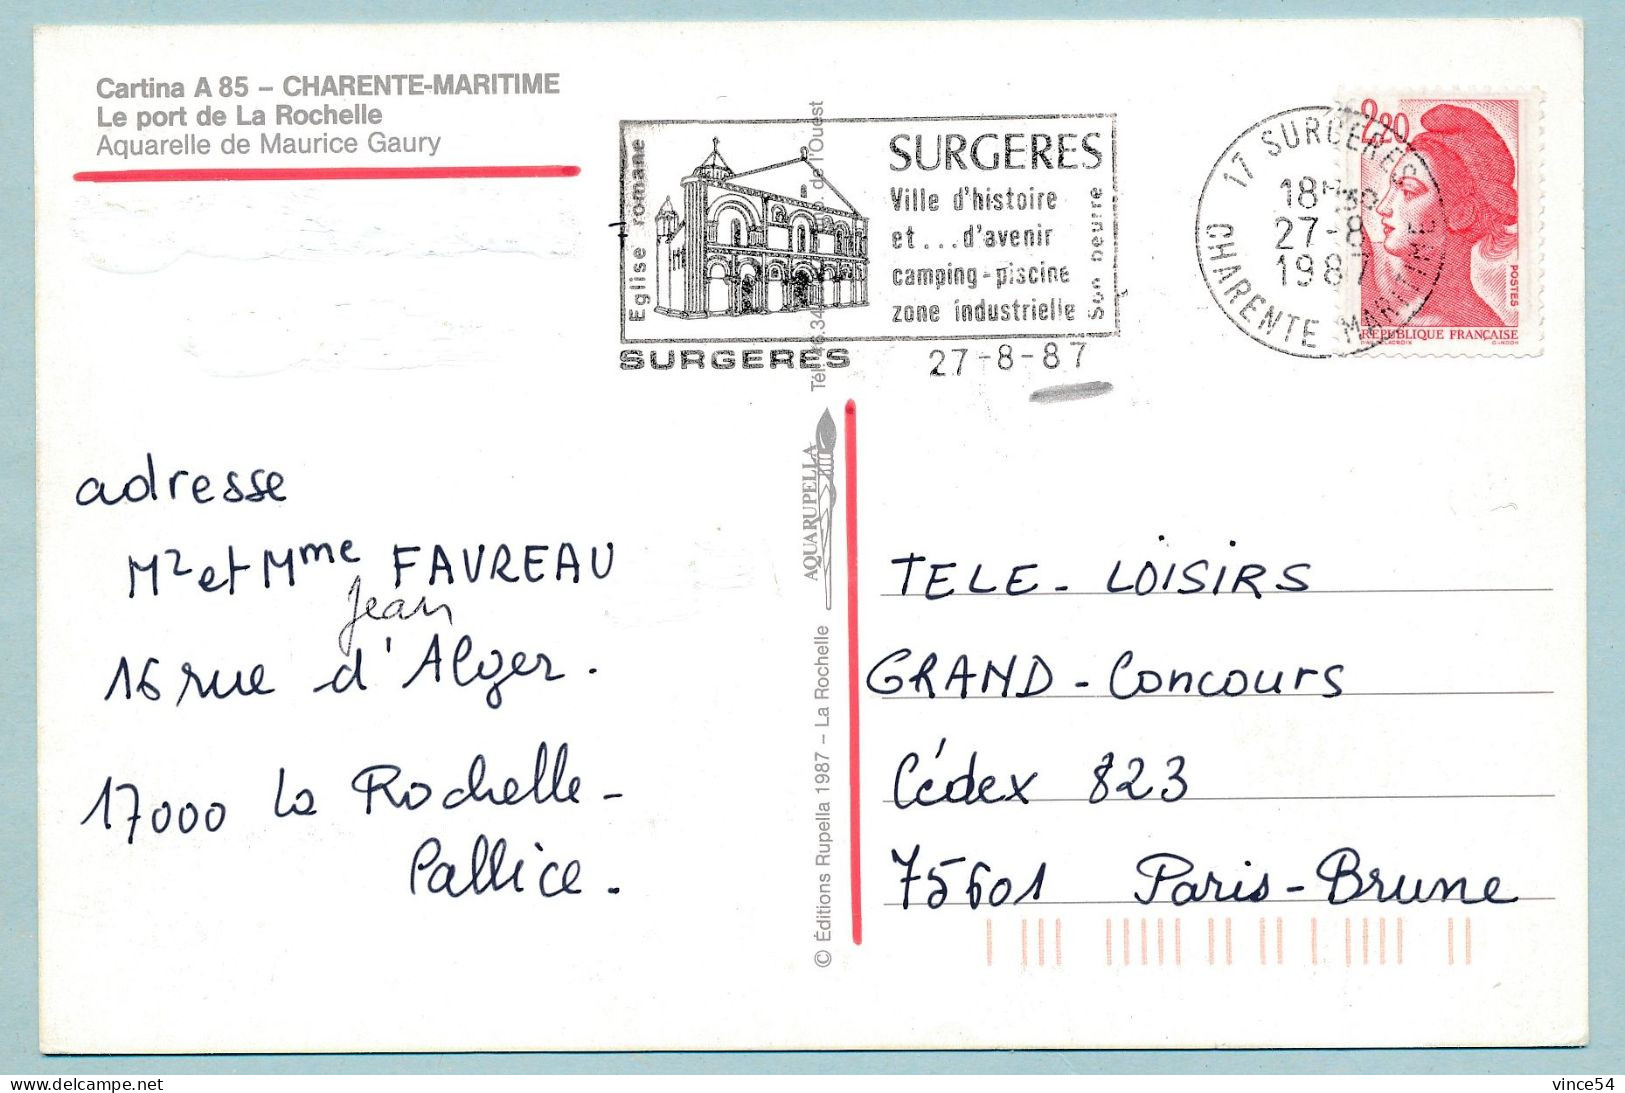 Cartina A 85 – CHARENTE-MARITIME
Le port de La Rochelle
Aquarelle de Maurice Gaury
Eglise romane
SURGERES
Ville d'histoire
et... d'avenir
camping-piscine
zone industrielle
Son beurre
SURGERES
27-8-87
17 SURGERES
18H30
27-8
1987
CHARENTE MARITIME
2,20
POSTES
REPUBLIQUE FRANÇAISE
adresse
Mr et Mme FAVREAU
Jean
16 rue d'Alger.
17000 La Rochelle-
Pallice.
de l'Ouest
Tél. 46.34
AQUARUPELLA
© Éditions Rupella 1987 – La Rochelle
TELE-LOISIRS
GRAND-Concours
Cédex 823
75601 Paris-Brune
delcampe.net
vince54